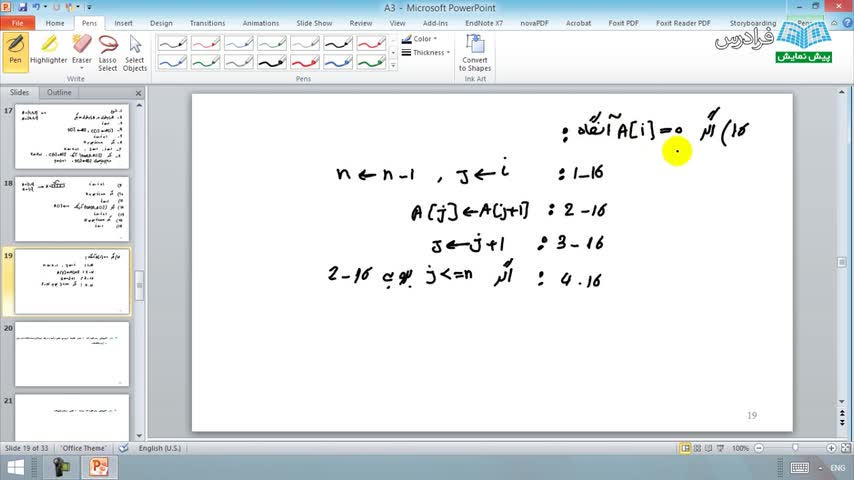 A3 - Microsoft PowerPoint
File
Home
Pens
Insert
Design
Transitions
Animations
Slide Show
Review
View
Add-Ins
EndNote X7
novaPDF
Acrobat
Foxit PDF
Foxit Reader PDF
Storyboarding
Pens
فرادرس
پیش نمایش
Pen
Highlighter
Eraser
Lasso Select
Select Objects
Color
Thickness
Convert to Shapes
Write
Pens
Ink Art
Slides
Outline
17
18
19
20
21
16) اگر A[i]=0 آنگاه :
16-1 : j ← i , n ← n-1
16-2 : A[j] ← A[j+1]
16-3 : j ← j+1
16-4 : اگر j <= n برو به 16-2
19
Slide 19 of 33
"Office Theme"
English (U.S.)
100%
ENG